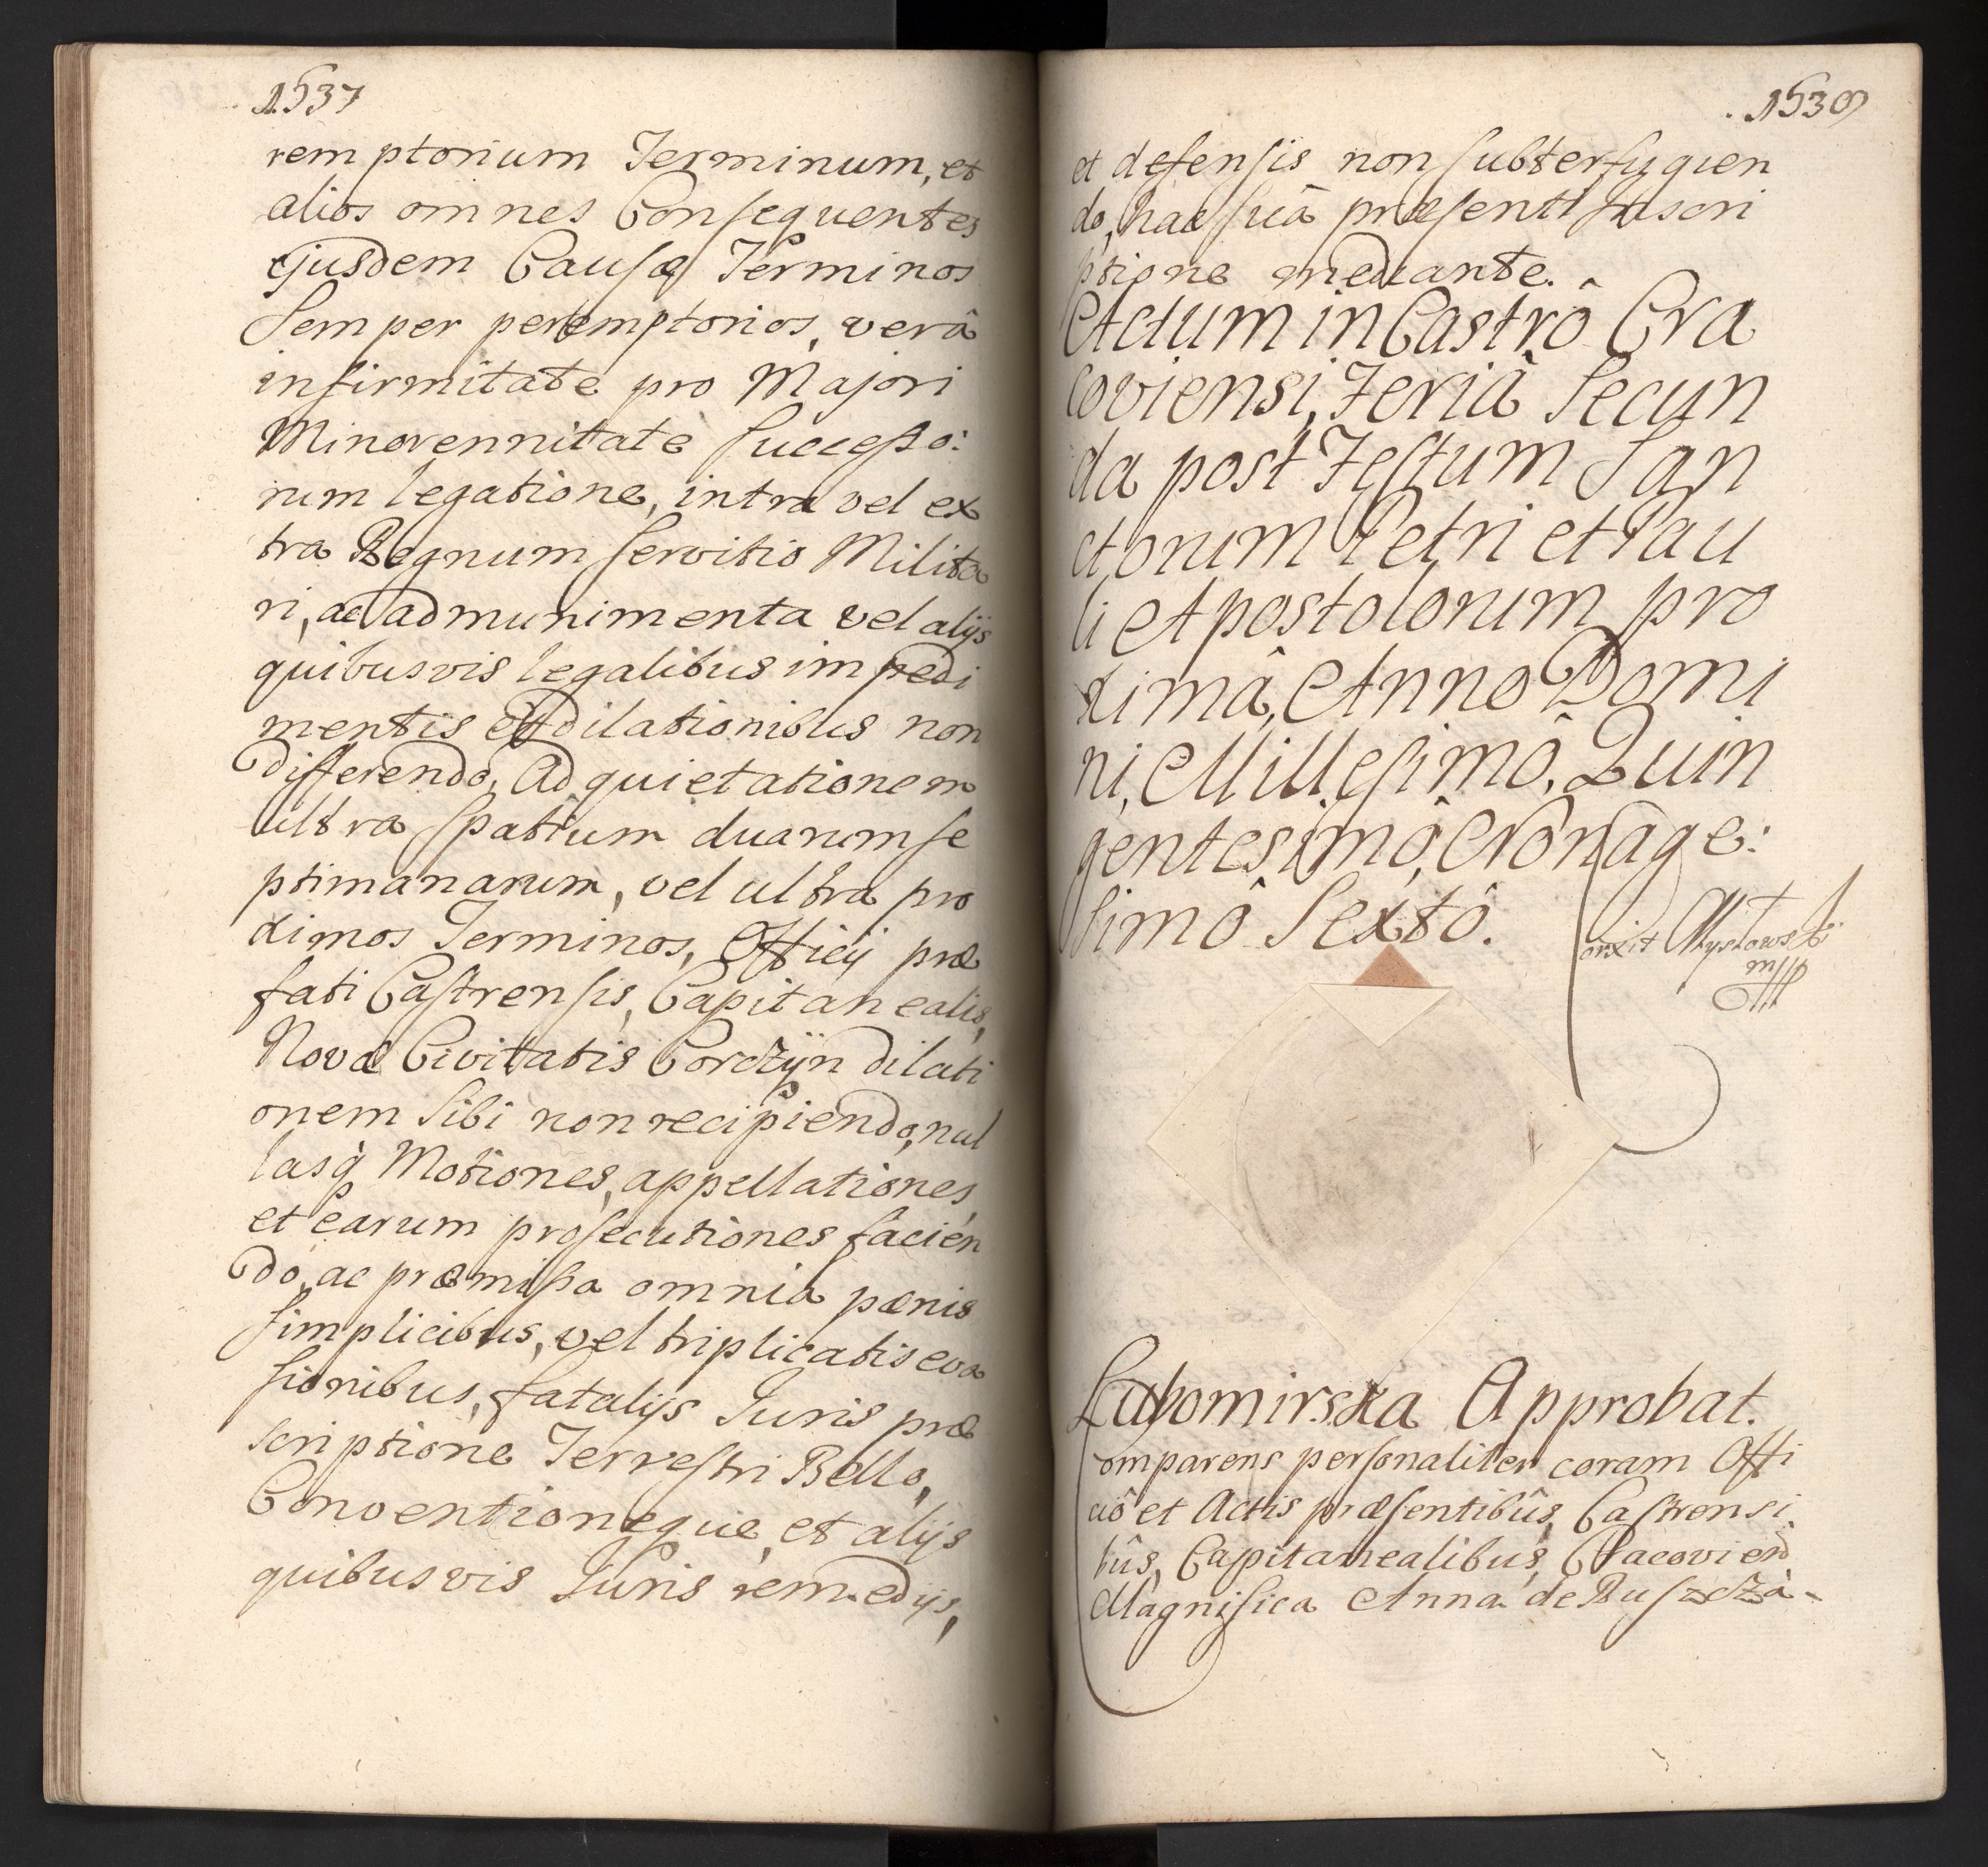 1537
remptorium Terminum, et
alios omnes Consequentes
ejusdem Causæ Terminos
Semper peremptorios, verâ
infirmitate pro Majori
Minorennitate Successo:
rum legatione, intra vel ex
tra Regnum servitio Milita
ri, ac ad munimenta vel alijs
quibusvis legalibus impedi
mentis et dilationibus non
differendo, Ad quietationem
ultra spatium duarum se
ptimanarum, vel ultra pro
ximos Terminos, Officij præ
fati Castrensis, Capitanealis,
Novæ Civitatis Corczyn dilati
onem Sibi non recipiendo, nul
lasq̀ Motiones, appellationes,
et earum prosecutiones facien
do, ac præmissa omnia pænis
simplicibus, vel triplicatis eva
sionibus, fatalijs Juris præ
scriptione Terrestri Bello,
Conventioneque, et alijs
quibusvis Juris remedijs,
1539
et defensis non subterfugien
do, hac suâ præsenti Inscri
ptione mediante.
Actum in Castrô Cra
coviensi, Feriâ Secun
da post Festum San
ctorum Petri et Pau
li Apostolorum pro
ximâ, Anno Domi
ni, Millesimô, Quin
gentesimô, Nonage:
simô Sextô.
Lubomirska Approbat.
omparens personaliter coram Offi
ciô et Actis præsentibûs, Castrensi
bûs, Capitanealibus, Cracovien
Magnifica Anna de Ruszczà-